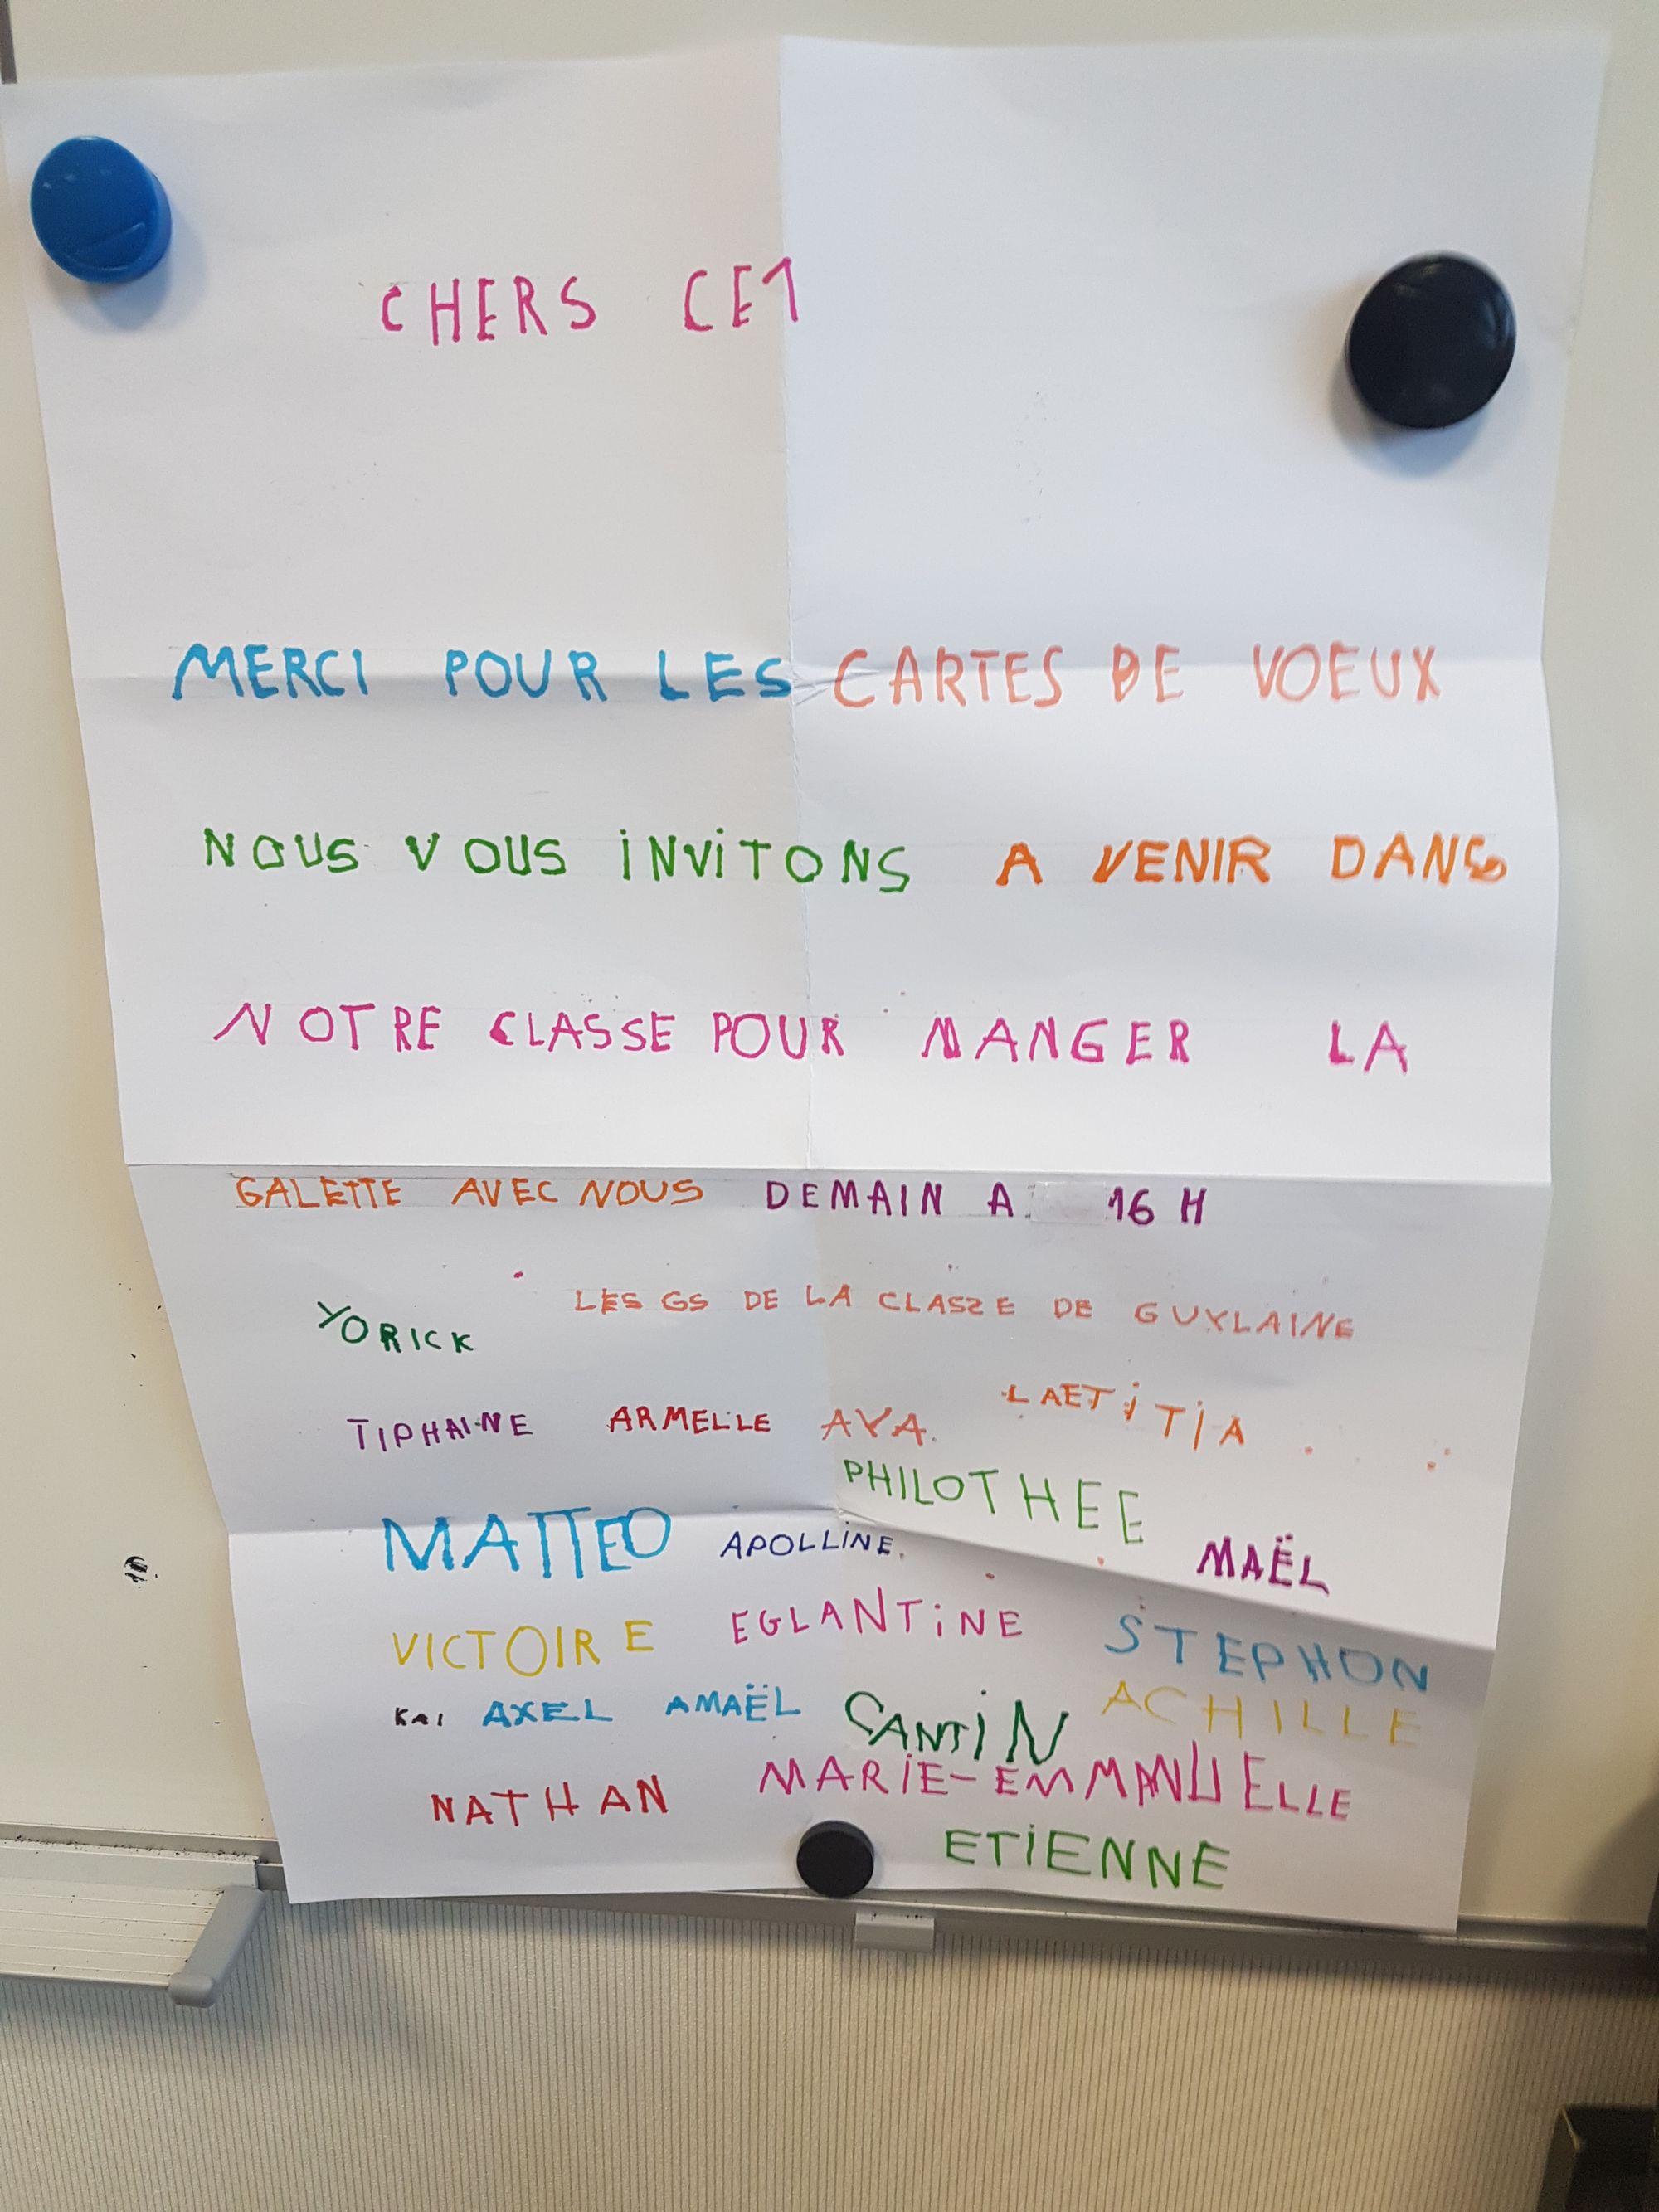 CHERS CE1
MERCI POUR LES CARTES DE VOEUX
NOUS VOUS INVITONS A VENIR DANS
NOTRE CLASSE POUR MANGER LA
GALETTE AVEC NOUS DEMAIN A 16 H
LES GS DE LA CLASSE DE GUYLAINE
YORICK
TIPHAINE ARMELLE AYA LAETITIA
PHILOTHEE
MATTEO APOLLINE. MAËL
VICTOIRE EGLANTINE STEPHON
KAI AXEL AMAËL CANTIN ACHILLE
NATHAN MARIE-EMMANUELLE
ETIENNE